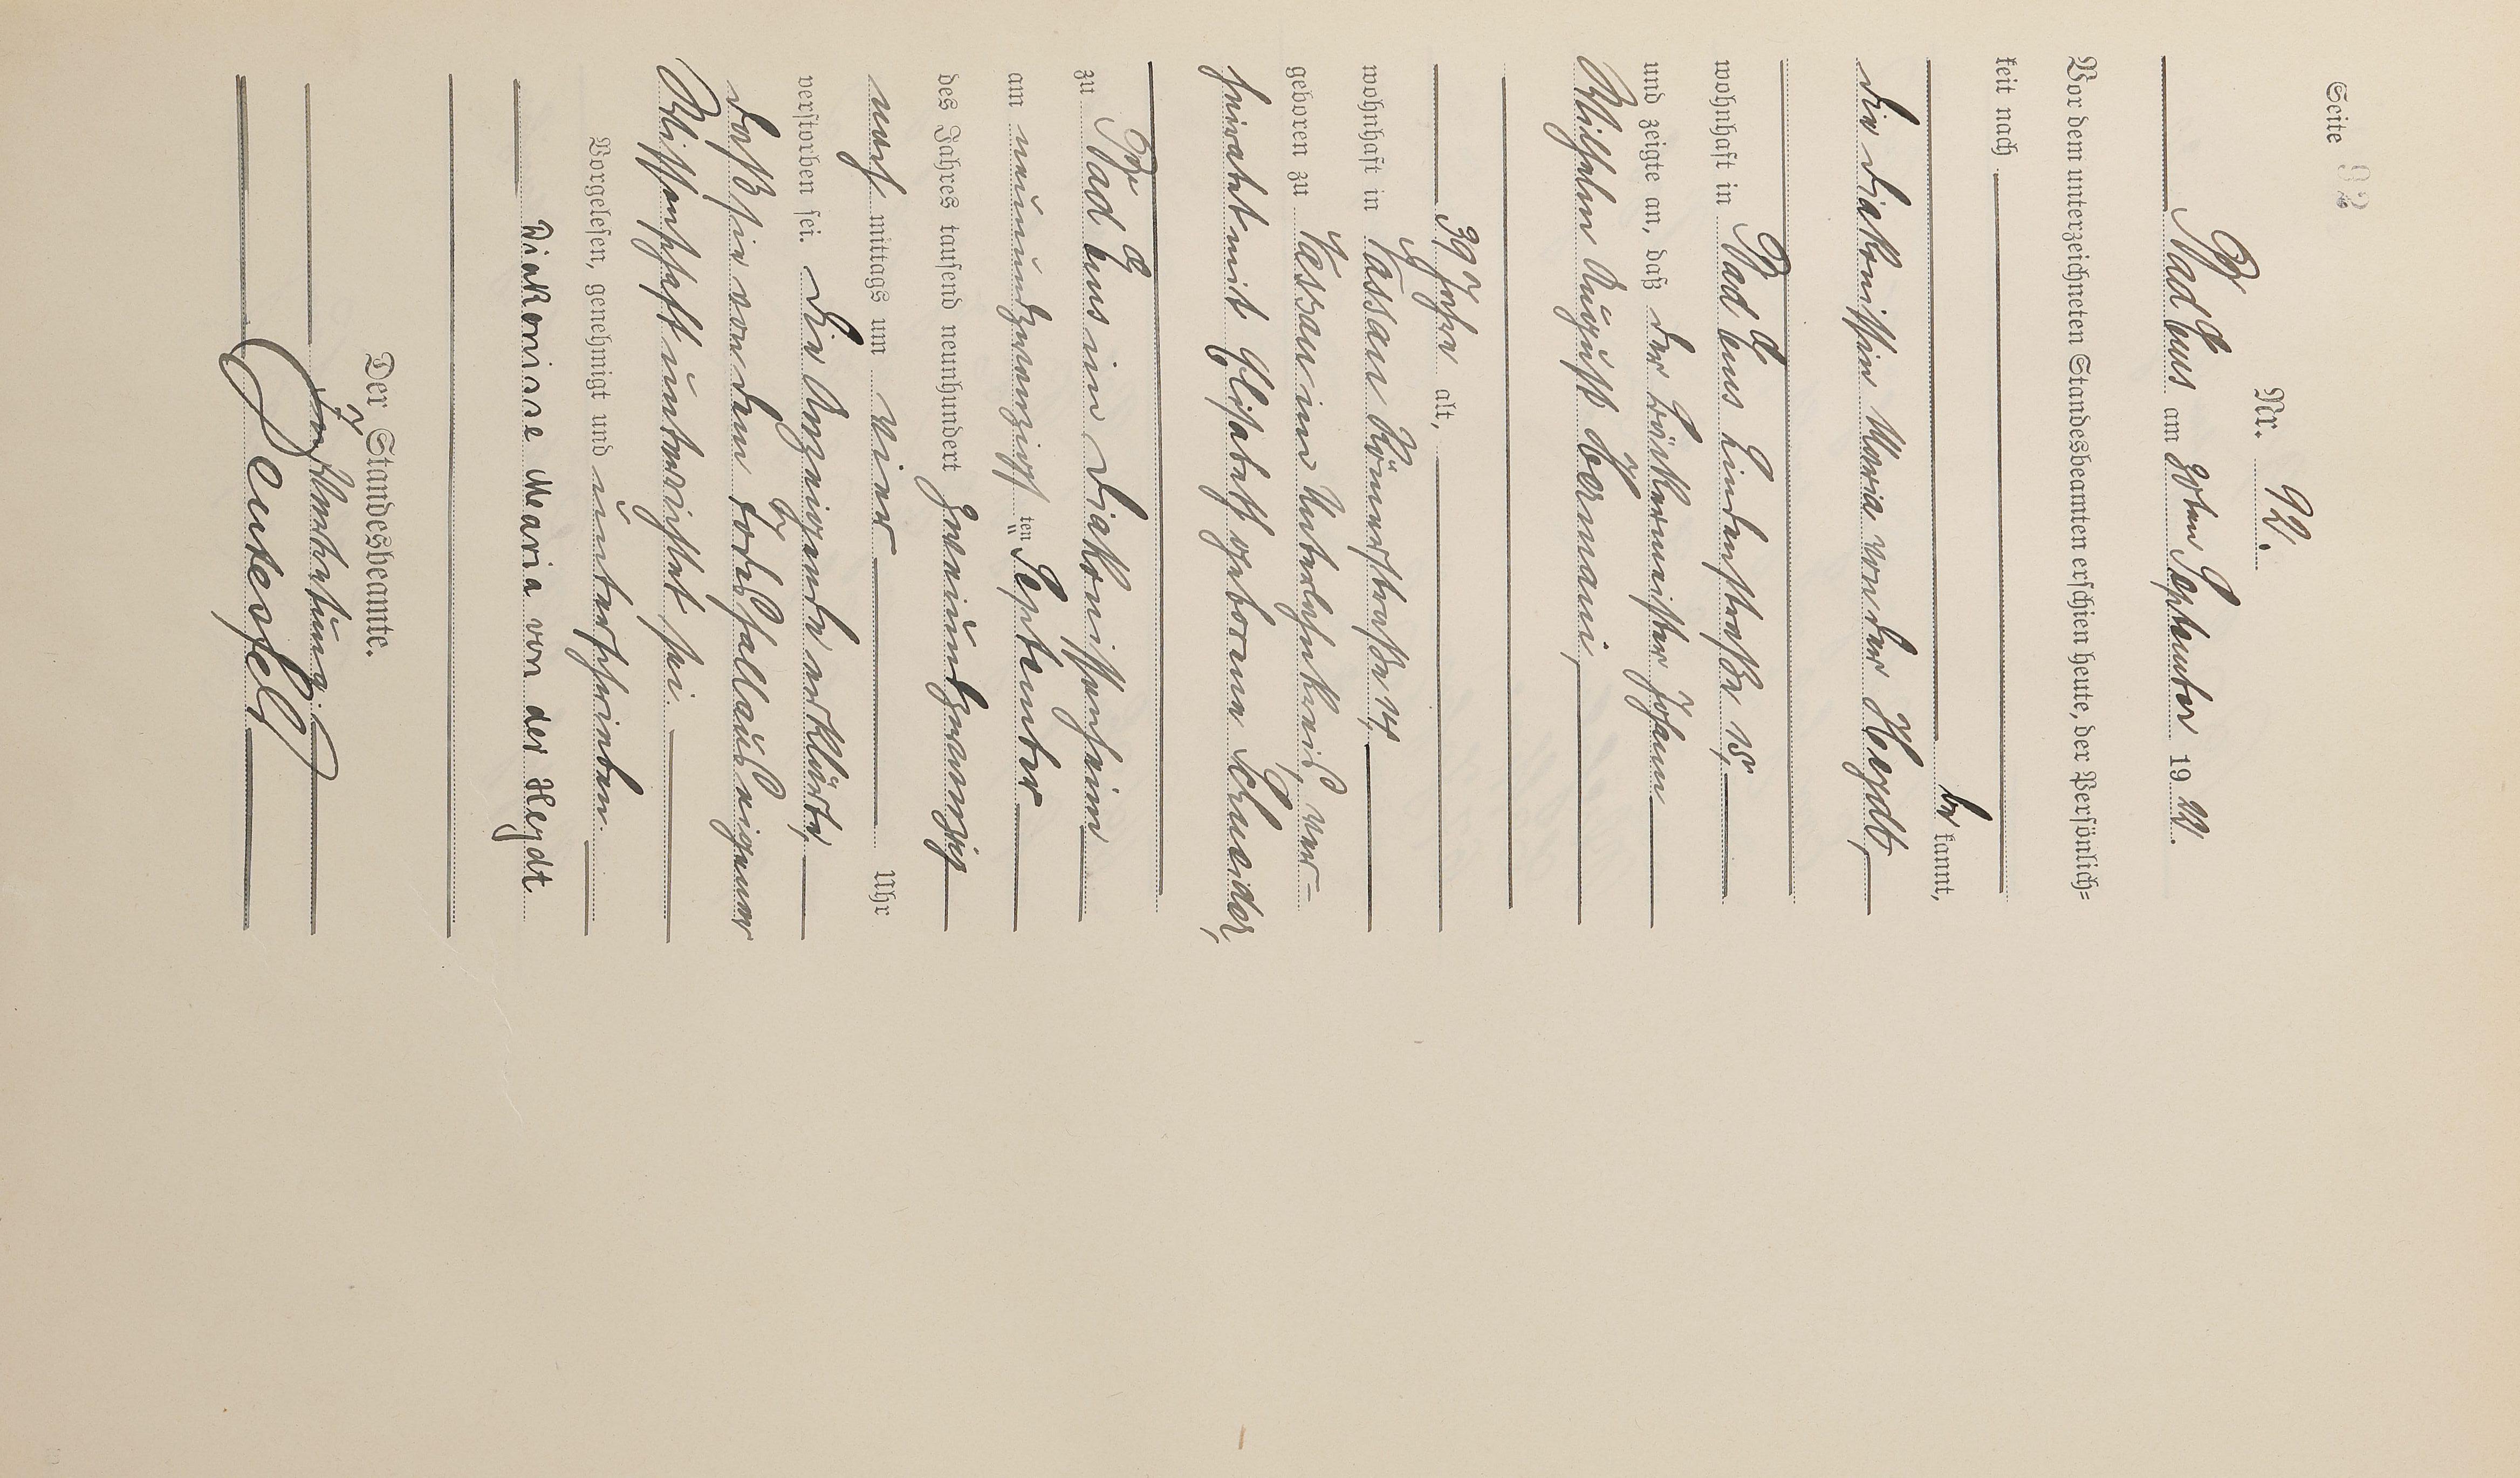 Seite 92
Nr. 92.
Bad Ems am 30ten September 1922.
Vor dem unterzeichneten Standesbeamten erschien heute, der Persönlich=
keit nach
be kannt,
die Diakonissin Maria von der Heydt,
wohnhaft in Bad Ems Lindenstraße 15,
und zeigte an, daß der Bäckermeister Johann
Wilhelm August Hermani,
39 Jahre alt,
wohnhaft in Nassau Römerstraße 14,
geboren zu Nassau im Unterlahnkreis, ver=
heiratet mit Elisabeth geborene Schneider,
zu Bad Ems im Diakonissenheim
am neunundzwanzigsten September
des Jahres tausend neunhundert zweiundzwanzig
nach mittags um vier Uhr
verstorben sei. Die Anzeigende erklärte,
daß sie von dem Todesfall aus eigener
Wissenschaft unterrichtet sei.
Vorgelesen, genehmigt und unterschrieben.
Diakonisse Maria von der Heydt
Der Standesbeamte.
In Vertretung: